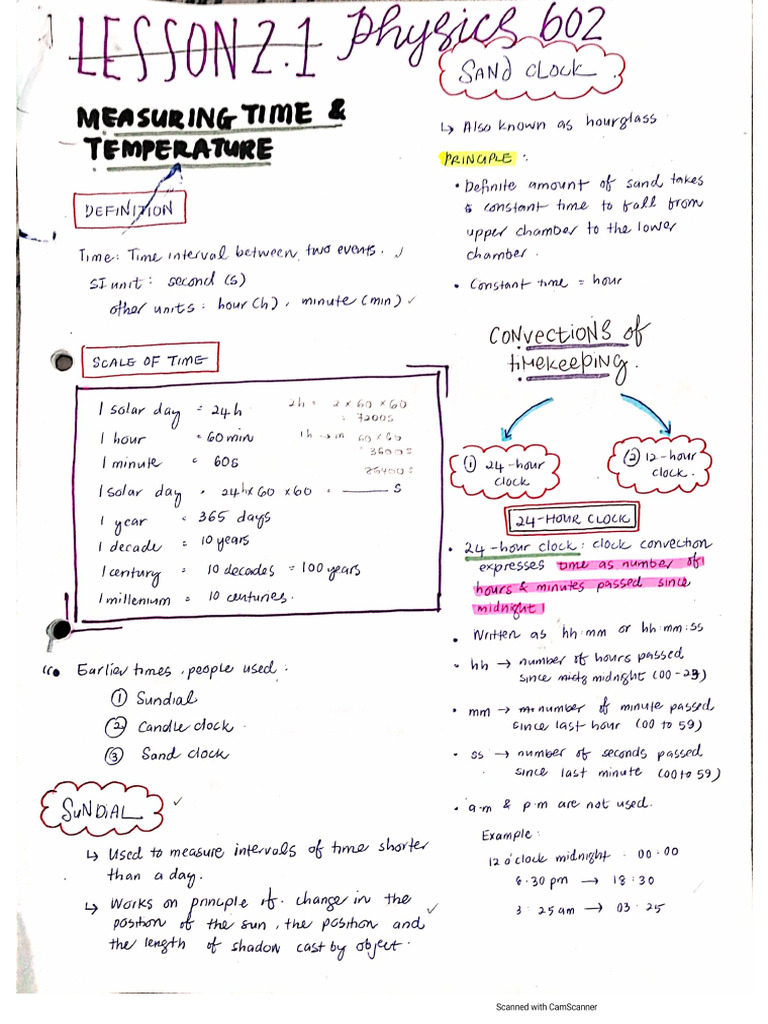 LESSON 2.1 Physics 602
MEASURING TIME &
TEMPERATURE
DEFINITION
Time: Time interval between two events.
SI unit: second (s)
other units: hour (h), minute (min)
SCALE OF TIME
1 solar day = 24h
2h = 2 x 60 x 60
= 7200s
1 hour = 60 min
1h → m 60 x 60
3600s
1 minute = 60s
86400s
1 solar day = 24h x 60 x 60 = ______ s
1 year = 365 days
1 decade = 10 years
1 century = 10 decades = 100 years
1 millenium = 10 centuries.
Earlier times, people used:
① Sundial
② Candle clock
③ Sand clock
SUNDIAL
↳ Used to measure intervals of time shorter
than a day.
↳ Works on principle of change in the
position of the sun, the position and
the length of shadow cast by object.
SAND CLOCK
↳ Also known as hourglass
PRINCIPLE:
• Definite amount of sand takes
constant time to fall from
upper chamber to the lower
chamber.
• Constant time = hour
Convections of
timekeeping.
① 24-hour
clock
② 12-hour
clock.
24-HOUR CLOCK
• 24-hour clock: clock convection
expresses time as number of
hours & minutes passed since
midnight
• Written as hh:mm or hh:mm:ss
• hh → number of hours passed
since midnight (00-23)
• mm → number of minute passed
since last hour (00 to 59)
• ss → number of seconds passed
since last minute (00 to 59)
• a.m & p.m are not used.
Example:
12 o'clock midnight . 00.00
6.30 pm → 18:30
3:25 am → 03.25
Scanned with CamScanner